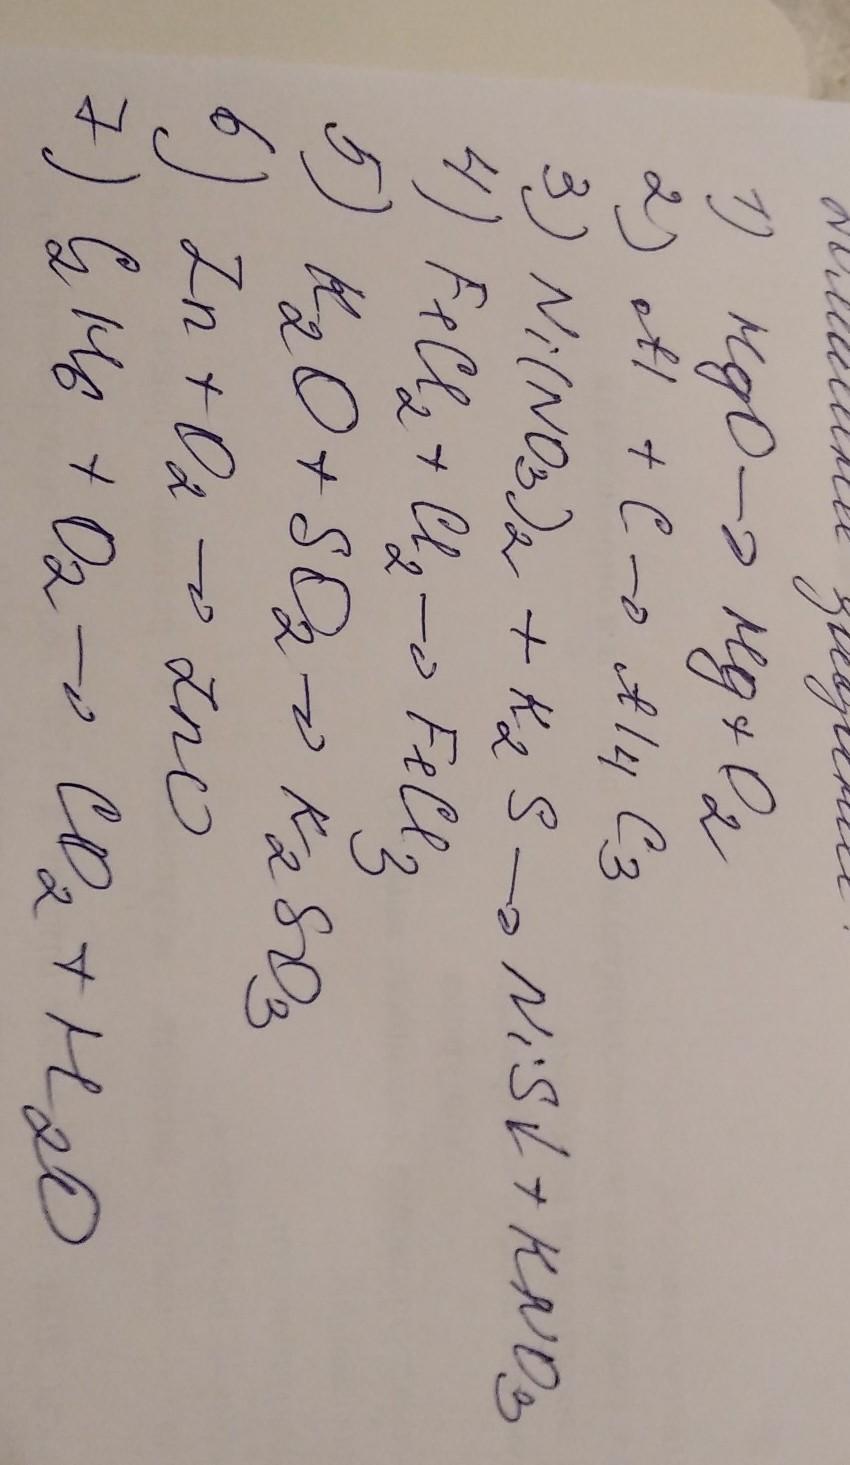 1) HgO → Hg + O2
2) Al + C → Al4C3
3) Ni(NO3)2 + K2S → NiS↓ + KNO3
4) FeCl2 + Cl2 → FeCl3
5) K2O + SO2 → K2SO3
6) Zn + O2 → ZnO
7) C2H6 + O2 → CO2 + H2O